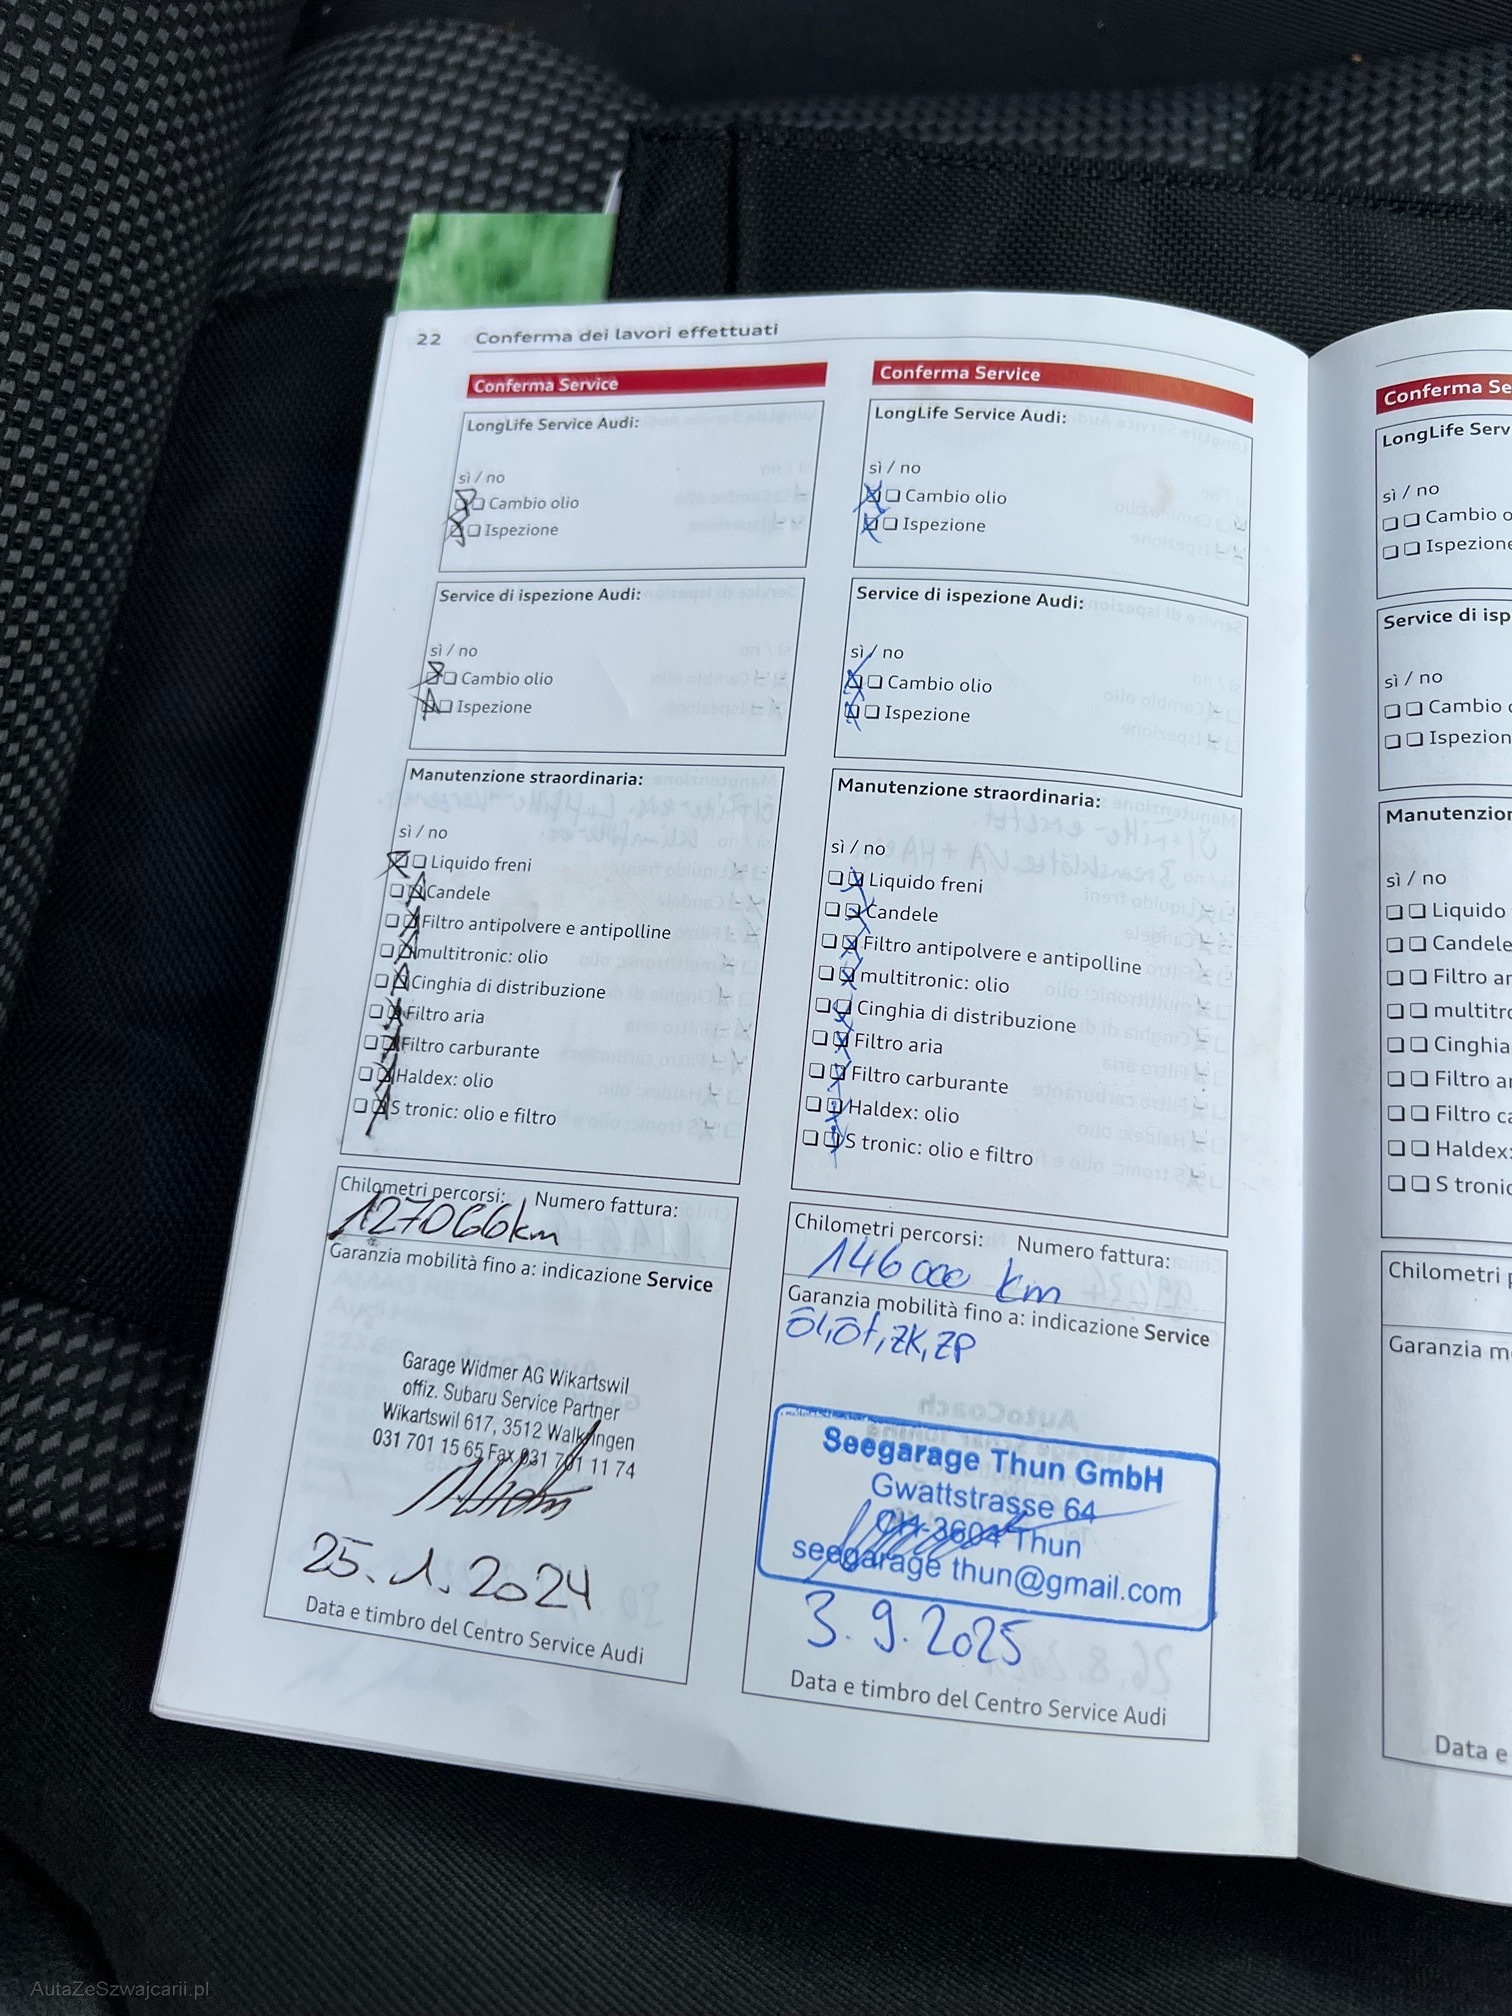 22 Conferma dei lavori effettuati
Conferma Service
LongLife Service Audi:
sì / no
Cambio olio
Ispezione
Service di ispezione Audi:
sì / no
Cambio olio
Ispezione
Manutenzione straordinaria:
sì / no
Liquido freni
Candele
Filtro antipolvere e antipolline
multitronic: olio
Cinghia di distribuzione
Filtro aria
Filtro carburante
Haldex: olio
S tronic: olio e filtro
Chilometri percorsi: Numero fattura:
127066km
Garanzia mobilità fino a: indicazione Service
Garage Widmer AG Wikartswil
offiz. Subaru Service Partner
Wikartswil 617, 3512 Walkringen
031 701 15 65 Fax 031 701 11 74
25.1.2024
Data e timbro del Centro Service Audi
Conferma Service
LongLife Service Audi:
sì / no
Cambio olio
Ispezione
Service di ispezione Audi:
sì / no
Cambio olio
Ispezione
Manutenzione straordinaria:
sì / no
Liquido freni
Candele
Filtro antipolvere e antipolline
multitronic: olio
Cinghia di distribuzione
Filtro aria
Filtro carburante
Haldex: olio
S tronic: olio e filtro
Chilometri percorsi: Numero fattura:
146000 km
Garanzia mobilità fino a: indicazione Service
Öl, Öf, ZK, ZP
Seegarage Thun GmbH
Gwattstrasse 64
CH-3604 Thun
seegarage thun@gmail.com
3.9.2025
Data e timbro del Centro Service Audi
Conferma Se
LongLife Serv
sì / no
Cambio o
Ispezione
Service di isp
sì / no
Cambio o
Ispezion
Manutenzion
sì / no
Liquido
Candele
Filtro an
multitro
Cinghia
Filtro ar
Filtro ca
Haldex:
S tronic
Chilometri p
Garanzia m
Data e
AutaZeSzwajcarii.pl